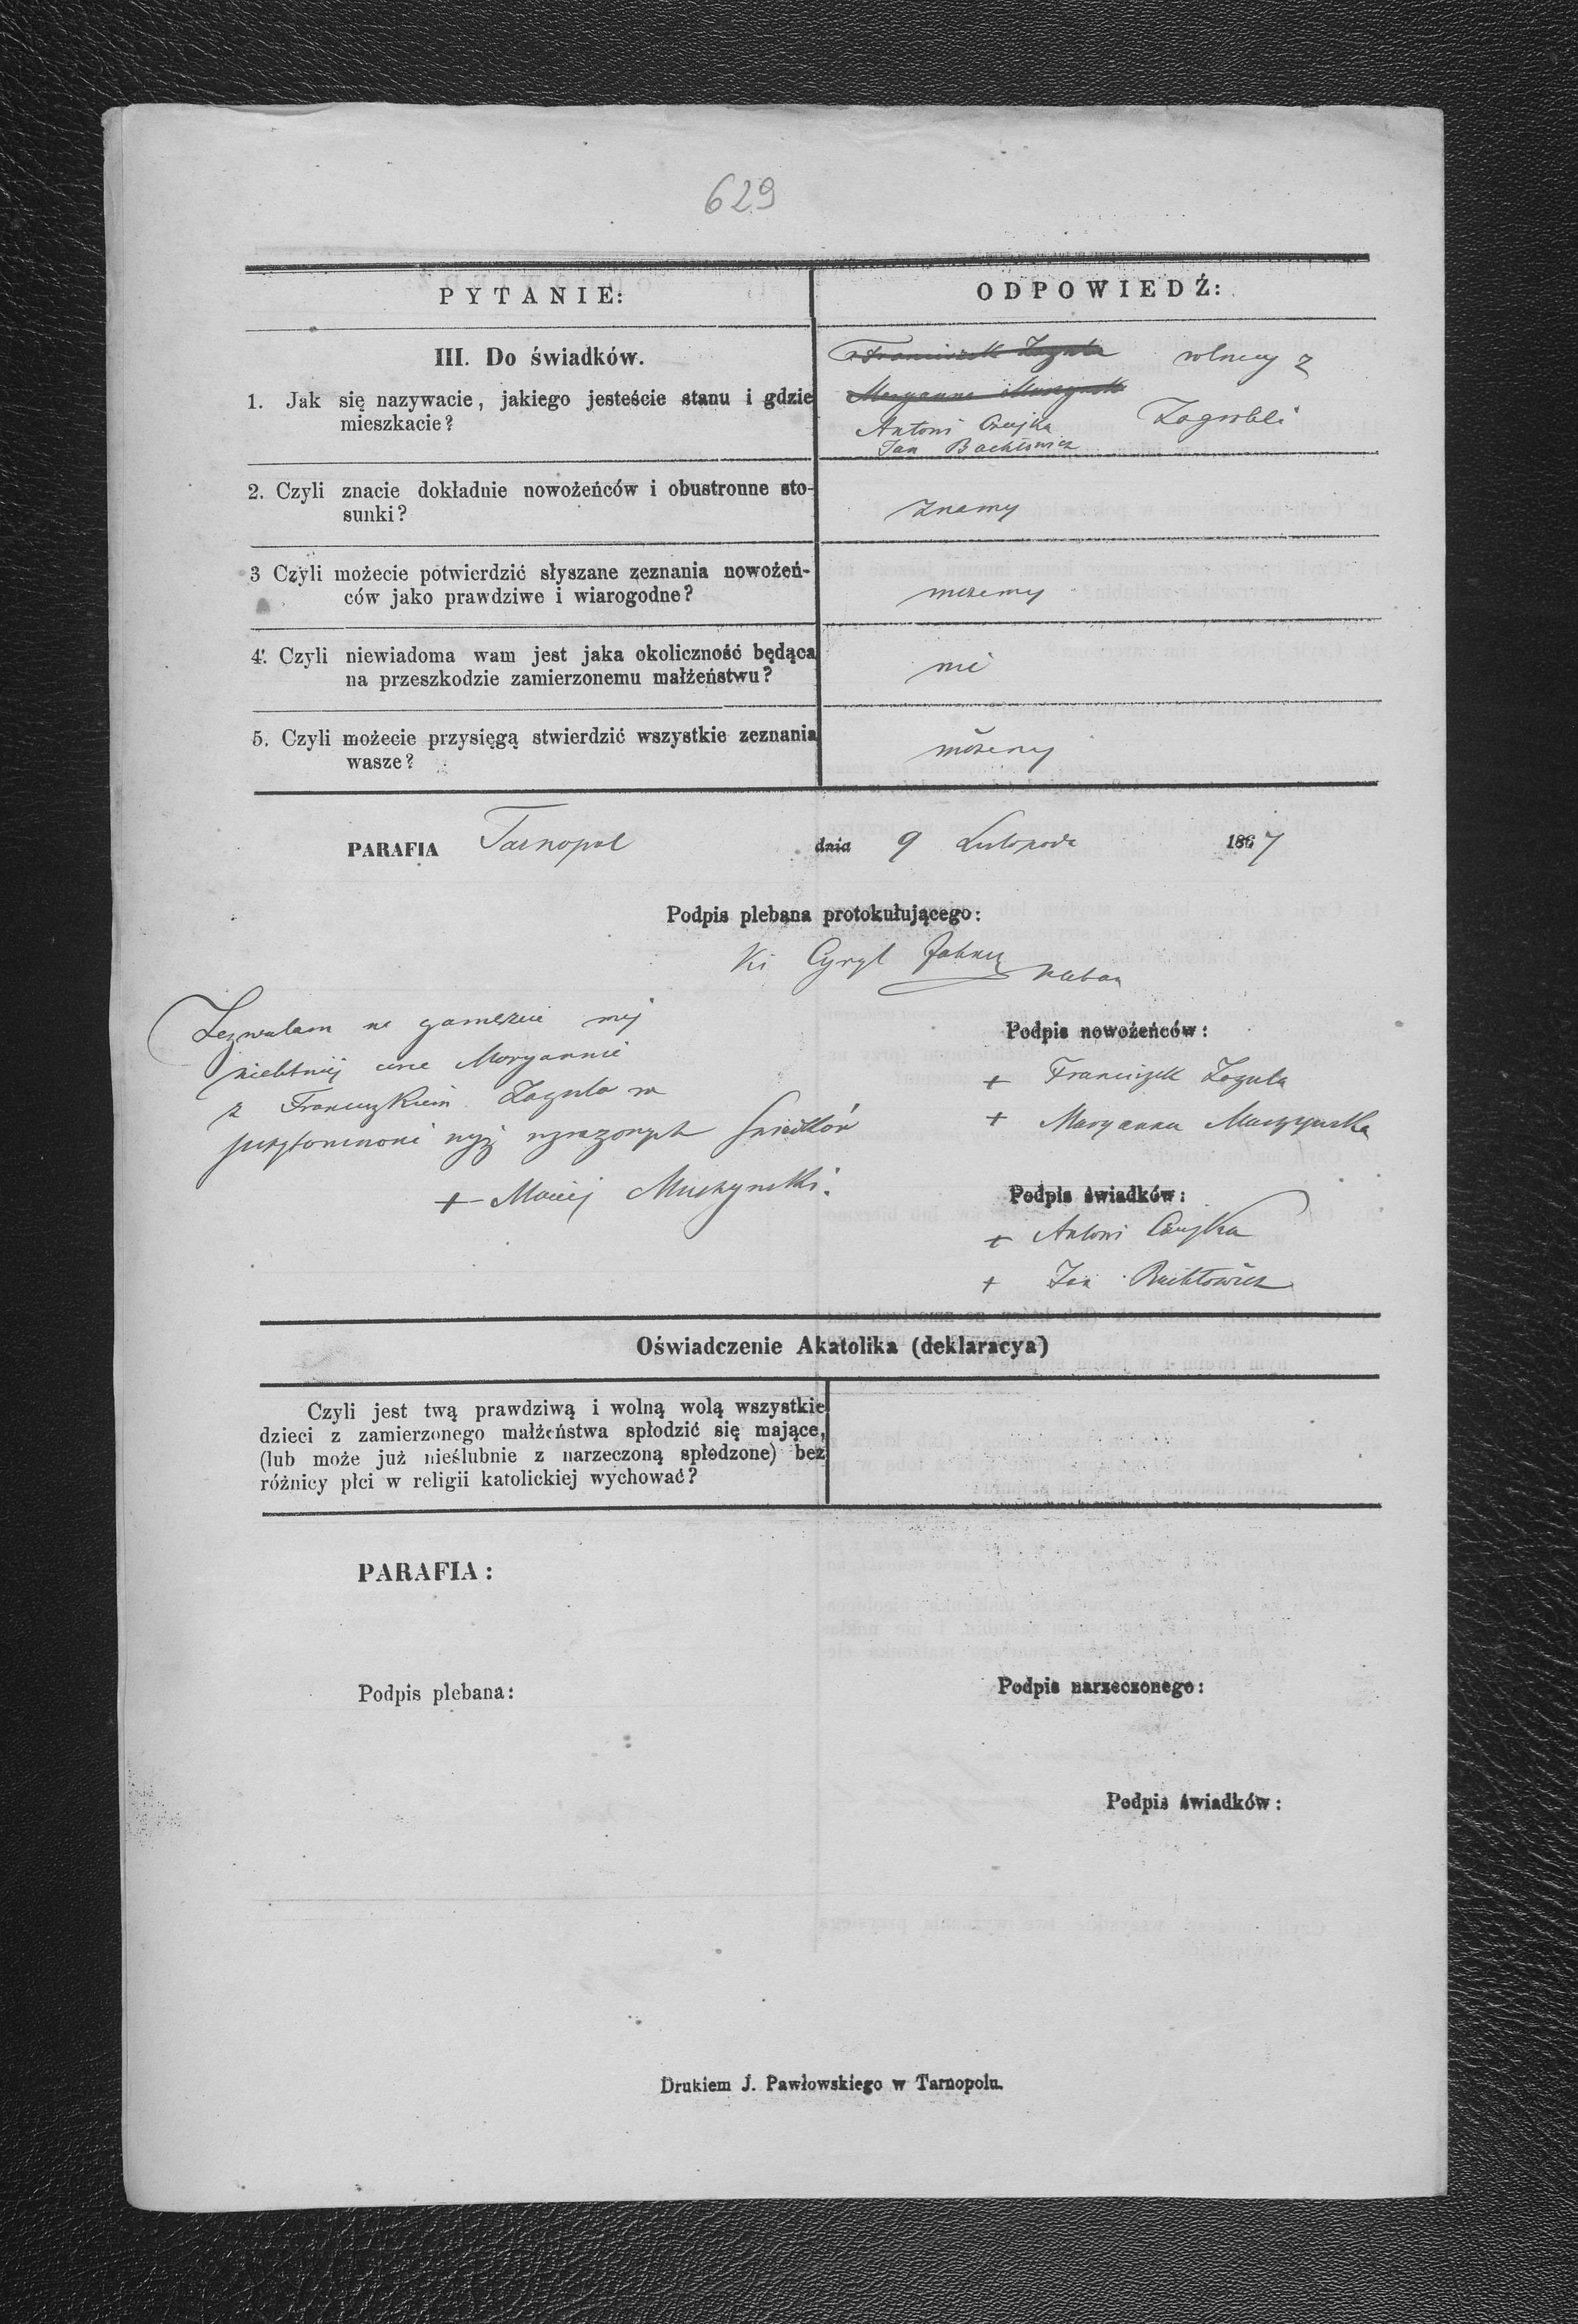 629
PYTANIE:
ODPOWIEDŹ:
III. Do świadków.
1. Jak się nazywacie, jakiego jesteście stanu i gdzie
mieszkacie?
Franciszek Zaguła rolnicy z
Maryanna Muszyńsk
Antoni Czajka Zagrobli
Jan Bachtowicz
2. Czyli znacie dokładnie nowożeńców i obustronne sto-
sunki?
znamy
3 Czyli możecie potwierdzić słyszane zeznania nowożeń-
ców jako prawdziwe i wiarogodne?
możemy
4. Czyli niewiadoma wam jest jaka okoliczność będąca
na przeszkodzie zamierzonemu małżeństwu?
nie
5. Czyli możecie przysięgą stwierdzić wszystkie zeznania
wasze?
możemy
PARAFIA Tarnopol dnia 9 Listopada 1867
Podpis plebana protokułującego:
Cyryl
Zezwalam na mej
Maryannie
z Franciszkiem Zagula w
świadków
+ Maciej Muszynski.
Podpis nowożeńców:
+ Franciszek Zagula
+ Maryanna Muszynska
Podpis świadków:
+ Antoni Czajka
+ Jan Bachtowicz
Oświadczenie Akatolika (deklaracya)
Czyli jest twą prawdziwą i wolną wolą wszystkie
dzieci z zamierzonego małżeństwa spłodzić się mające,
(lub może już nieślubnie z narzeczoną spłodzone) bez
różnicy płci w religii katolickiej wychować?
PARAFIA:
Podpis plebana:
Podpis narzeczonego:
Podpis świadków:
Drukiem J. Pawłowskiego w Tarnopolu.